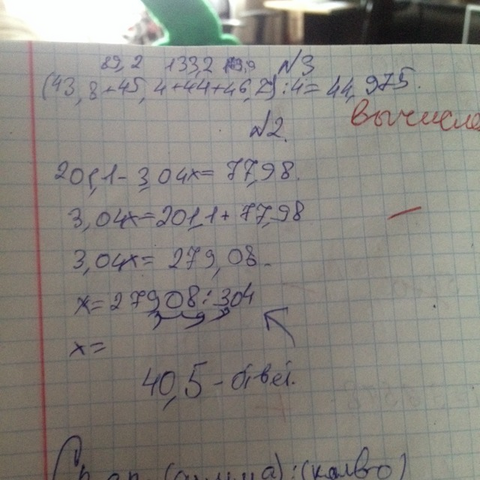 89,2 133,2 179,9 №3
(43,8+45,4+44+46,7):4=44,975.
вычисле
№2.
201,1-3,04x=77,98.
3,04x=201,1+77,98
3,04x=279,08.
x=27908:304
x=
40,5-
Ср.ар. (сумма):(кол-во)